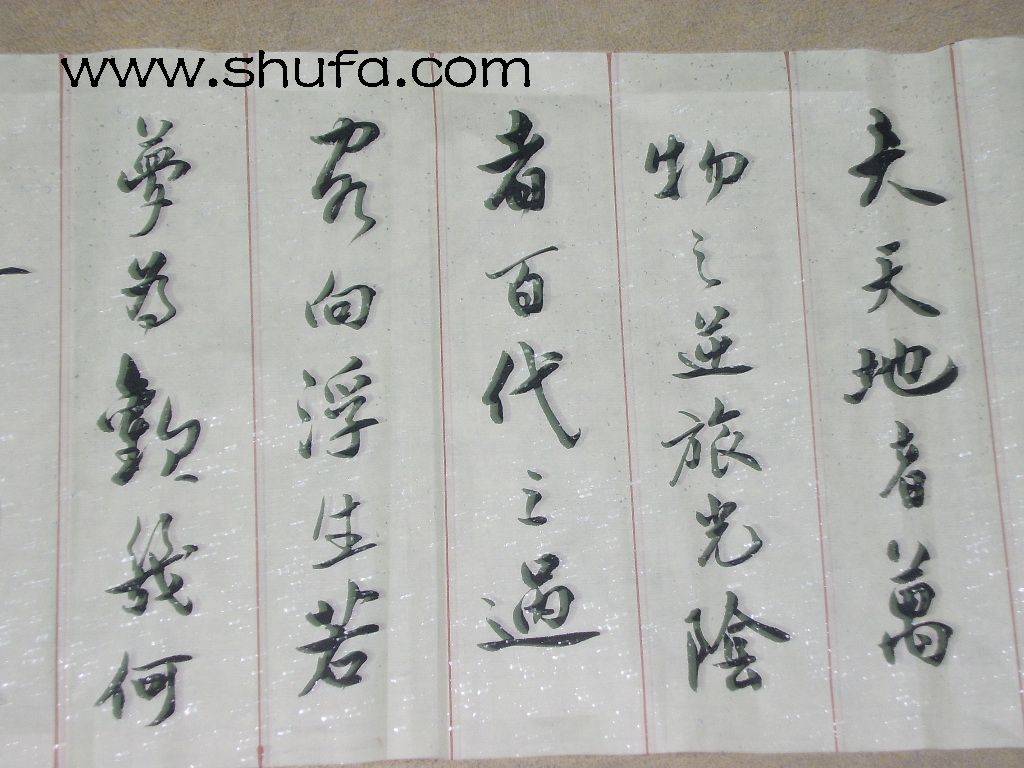 www.shufa.com
夫天地者萬
物之逆旅光陰
者百代之過
客向浮生若
夢為歡幾何